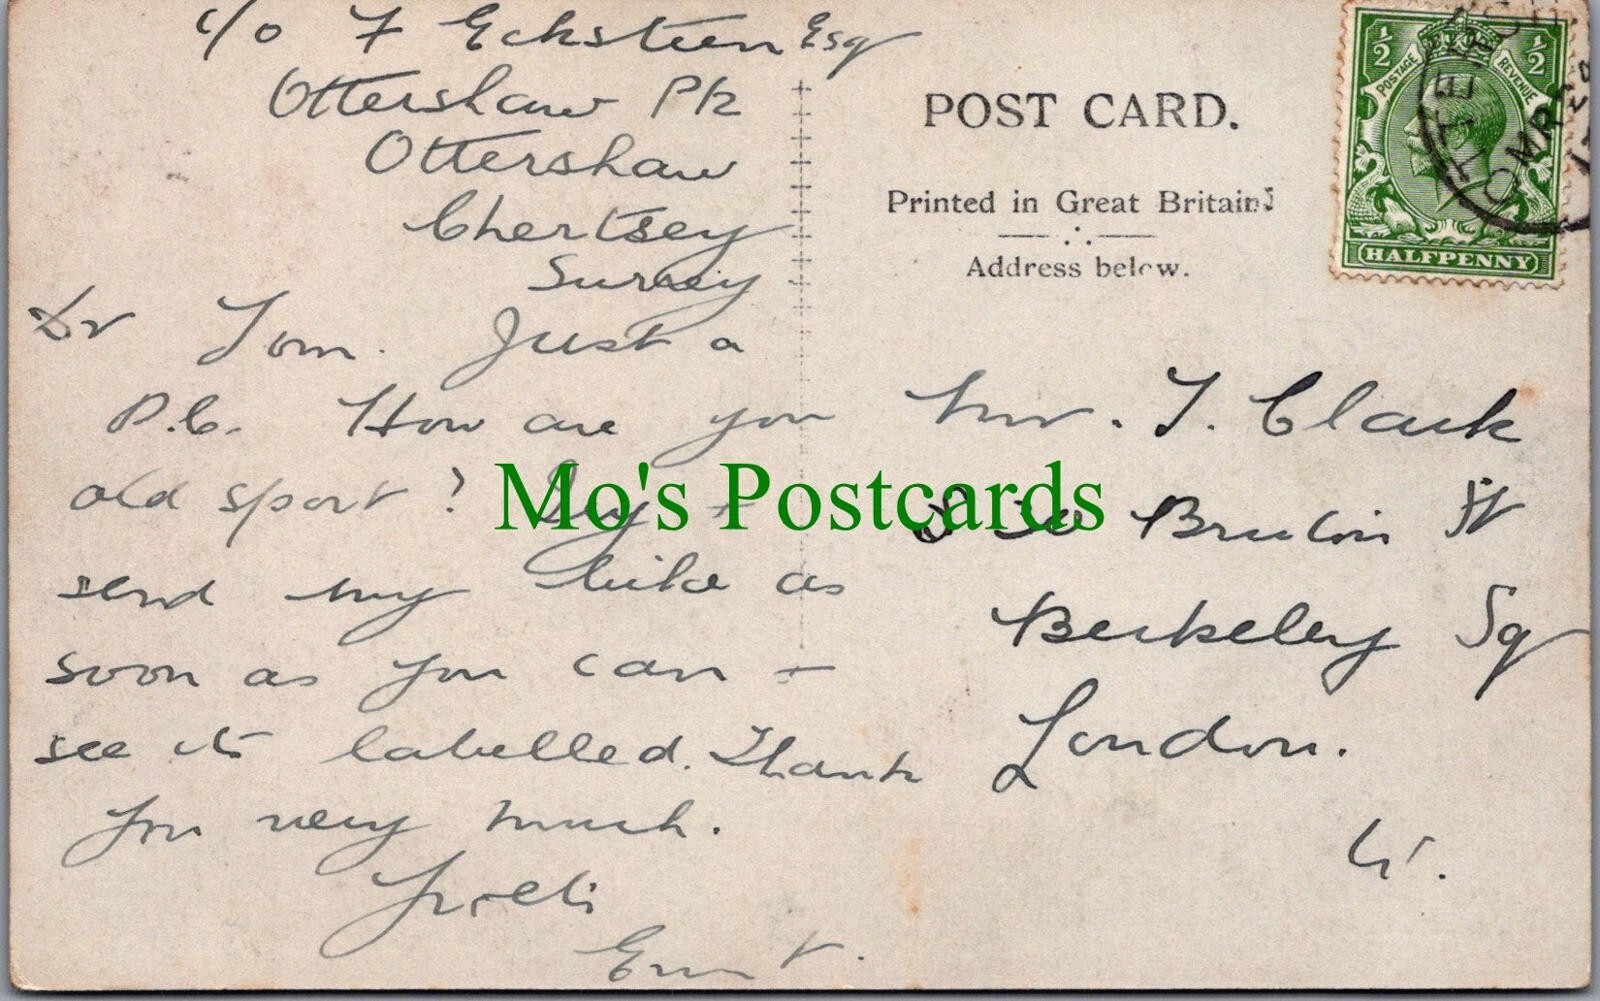 c/o F Eckstein Esq
Ottershaw Pk
Ottershaw
Chertsey
Surrey
Dr Tom. Just a
P.C. How are you
old sport? Try +
send my bike as
soon as you can +
see its labelled. Thank
you very much.
Ernest.
POST CARD.
Printed in Great Britain
Address below.
½ ½
POSTAGE REVENUE
HALFPENNY
MR
Mr. T. Clark
30 Bruton St
Berkeley Sq
London.
W.
Mo's Postcards